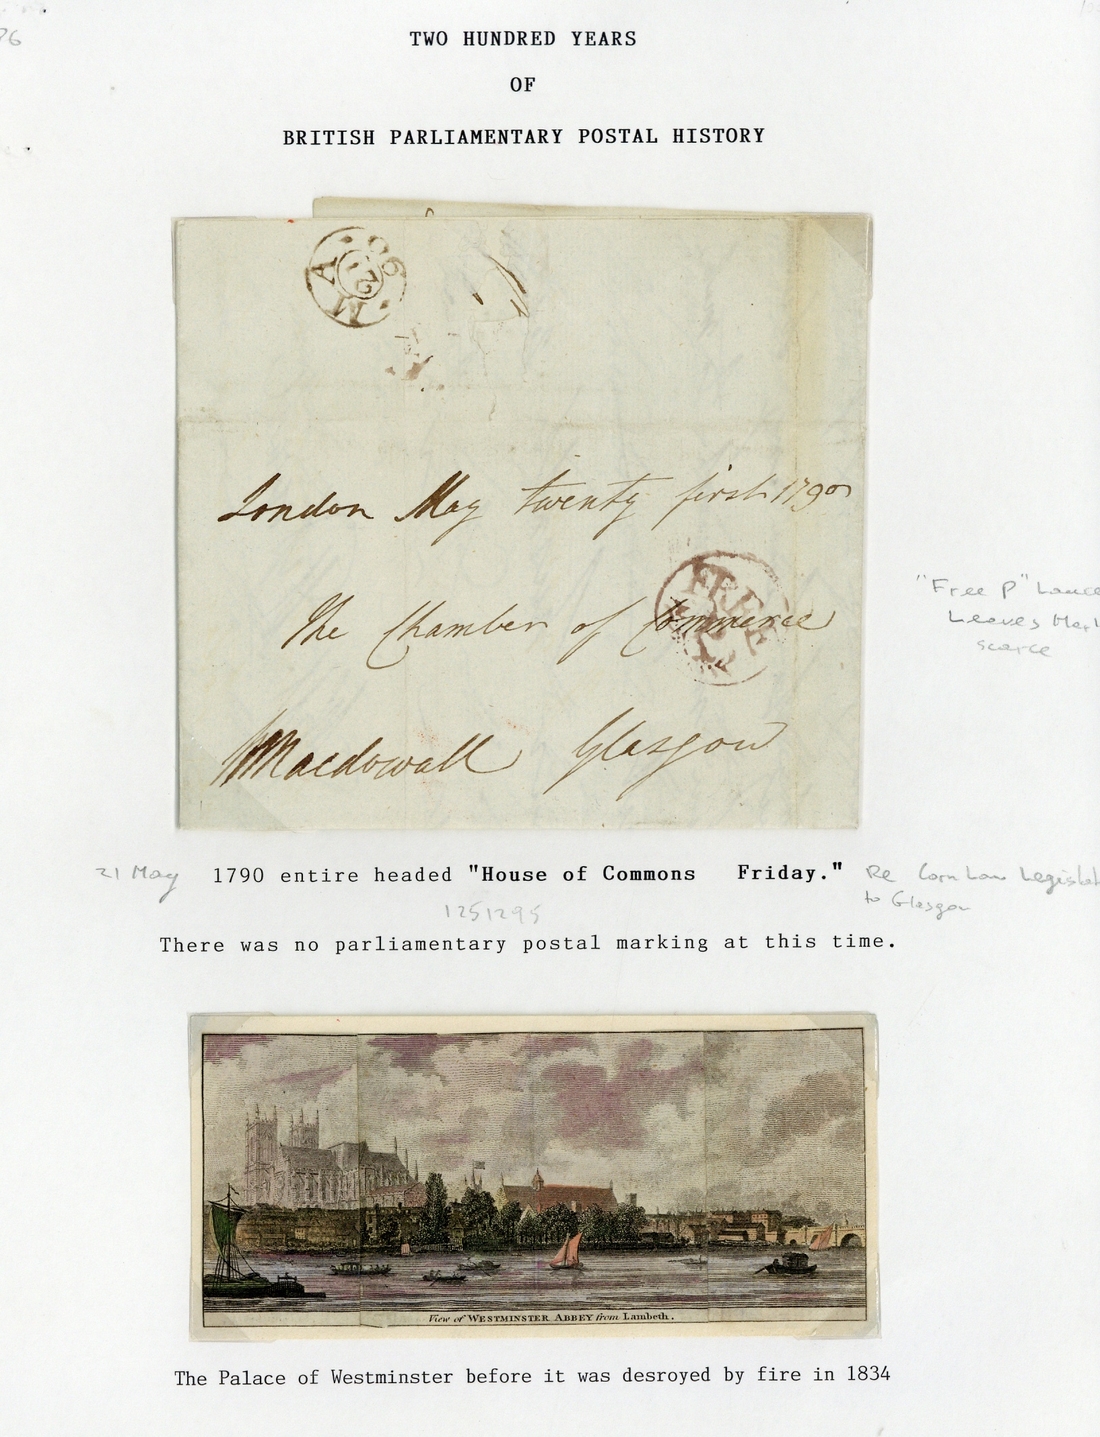 76
TWO HUNDRED YEARS
OF
BRITISH PARLIAMENTARY POSTAL HISTORY
MA 90
21
London May twenty first 1790
FREE
The Chamber of Commerce
Macdowall Glasgow
"Free P"
Leaves
scarce
21 May 1790 entire headed "House of Commons Friday." Re Corn Law Legislat
to Glasgow
1251295
There was no parliamentary postal marking at this time.
View of WESTMINSTER ABBEY from Lambeth.
The Palace of Westminster before it was desroyed by fire in 1834